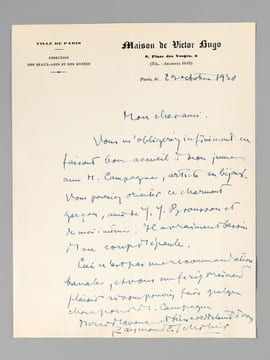 VILLE DE PARIS
DIRECTION
DES BEAUX-ARTS ET DES MUSÉES
Maison de Victor Hugo
6, Place des Vosges, 6
(Tél. : ARCHIVES 18-65)
Paris, le 29 octobre 19
Mon cher ami.
Vous m'obligeriez infiniment en
faisant bon accueil à mon jeune
ami M. Campagne, artiste en bijoux.
Vous pourriez orienter ce charmant
garçon, ami de J. J. Brousson et
de moi-même. Il a vraiment besoin
d'un coup d'épaule.
Ceci n'est pas une recommandation
banale, et vous me feriez vraiment
plaisir si vous pouviez faire quelque
chose pour M. Campagne
Merci d'avance et bien cordialement
Raymond Escholier